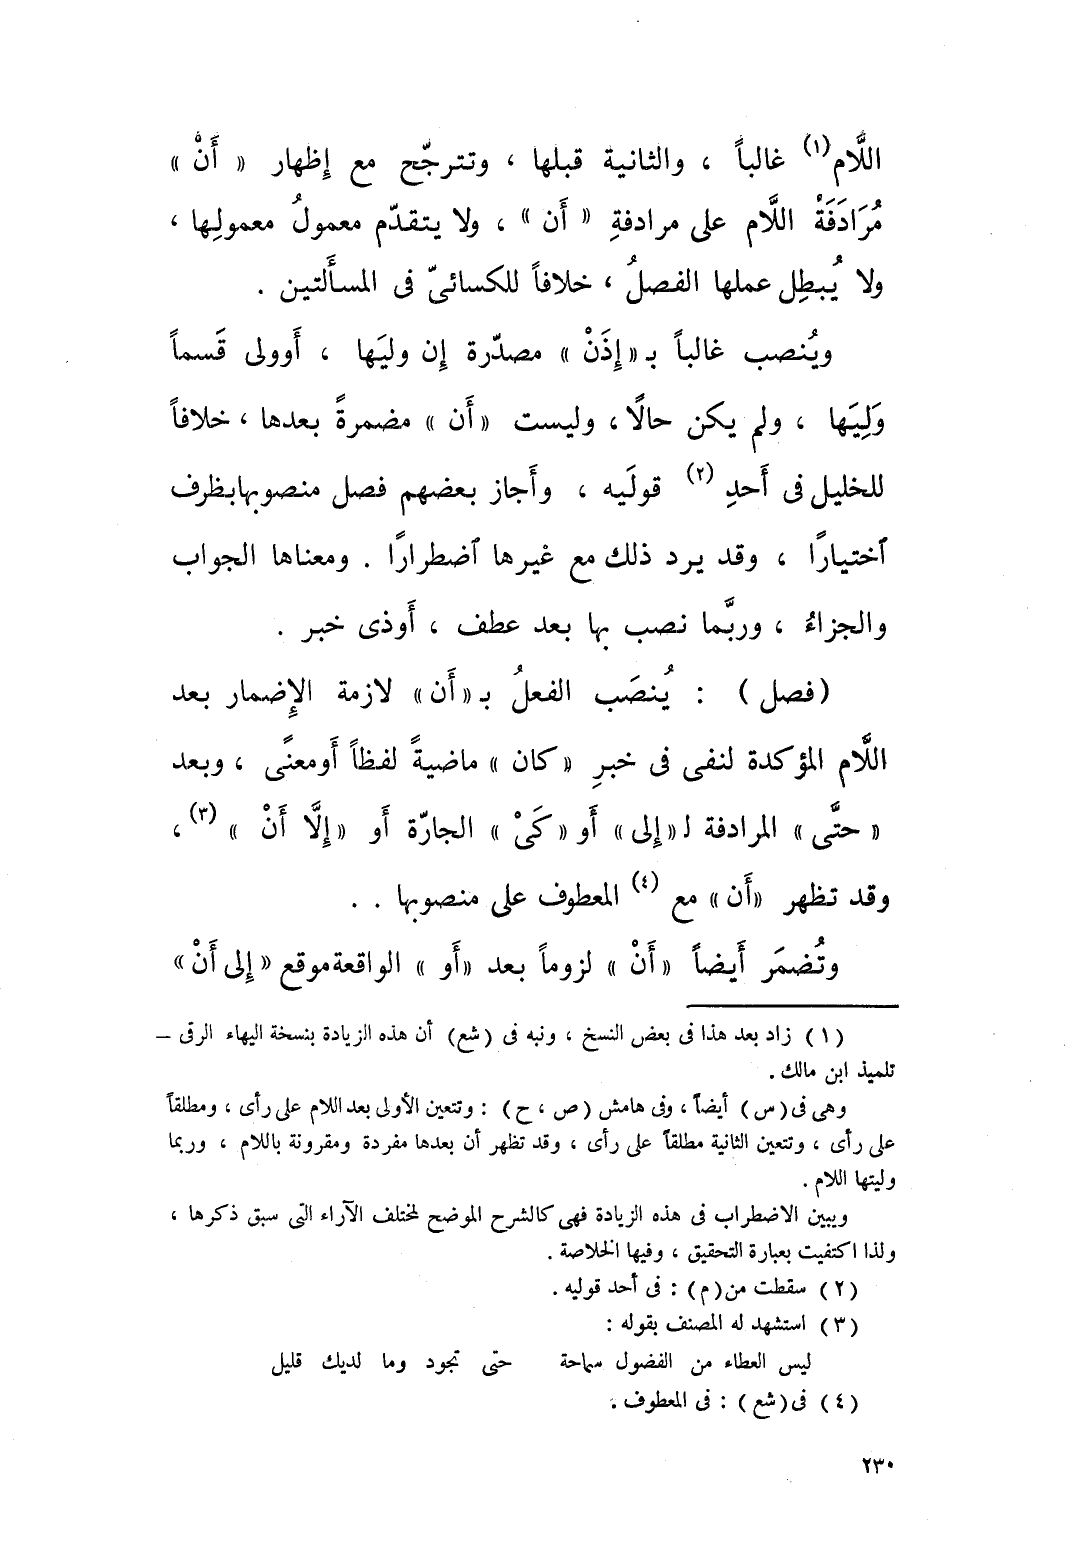 اللَّام(١) غالباً ، والثانية قبلها ، وتترجّح مع إظهار « أَنْ »
مُرَادَفَةُ اللَّام على مرادفةِ « أَن » ، ولا يتقدّم معمولُ معمولِها ،
ولا يُبطِل عملها الفصلُ ، خلافاً للكسائىّ فى المسأَلتين .
ويُنصب غالباً بـ «إِذَنْ » مصدّرة إِن وليَها ، أَوولى قَسماً
وَلِيَها ، ولم يكن حالًا ، وليست «أَن » مضمرةً بعدها ، خلافاً
للخليل فى أَحدِ (٢) قولَيه ، وأَجاز بعضهم فصل منصوبهابظرف
ٱختيارًا ، وقد يرد ذلك مع غيرها ٱضطرارًا . ومعناها الجواب
والجزاءُ ، وربَّما نصب بها بعد عطف ، أَوذى خبر .
(فصل ) : يُنصَب الفعلُ بـ «أَن» لازمة الإِضمار بعد
اللَّام المؤكدة لنفى فى خبرِ «كان » ماضيةً لفظاً أَومعنًى ، وبعد
« حتَّى » المرادفة لـ «إلى» أَو «كَىْ » الجارّة أَو «إِلَّا أَنْ » (٣) ،
وقد تظهر «أَن» مع (٤) المعطوف على منصوبها . .
وتُضمَر أَيضاً «أَنْ » لزوماً بعد «أَو » الواقعةموقع «إلى أَنْ»
(١) زاد بعد هذا فى بعض النسخ ، ونبه فى (شع) أن هذه الزيادة بنسخة البهاء الرقى –
تلميذ ابن مالك .
وهى فى(س) أيضاً ، وفى هامش (ص ، ح) : وتتعين الأولى بعد اللام على رأى ، ومطلقاً
على رأى ، وتتعين الثانية مطلقاً على رأى ، وقد تظهر أن بعدها مفردة ومقرونة باللام ، وربما
وليتها اللام .
ويبين الاضطراب فى هذه الزيادة فهى كالشرح الموضح لمختلف الآراء التى سبق ذكرها ،
ولذا اكتفيت بعبارة التحقيق ، وفيها الخلاصة .
(٢) سقطت من(م) : فى أحد قوليه .
(٣) استشهد له المصنف بقوله :
ليس العطاء من الفضول سماحة حتى تجود وما لديك قليل
(٤) فى(شع) : فى المعطوف .
٢٣٠